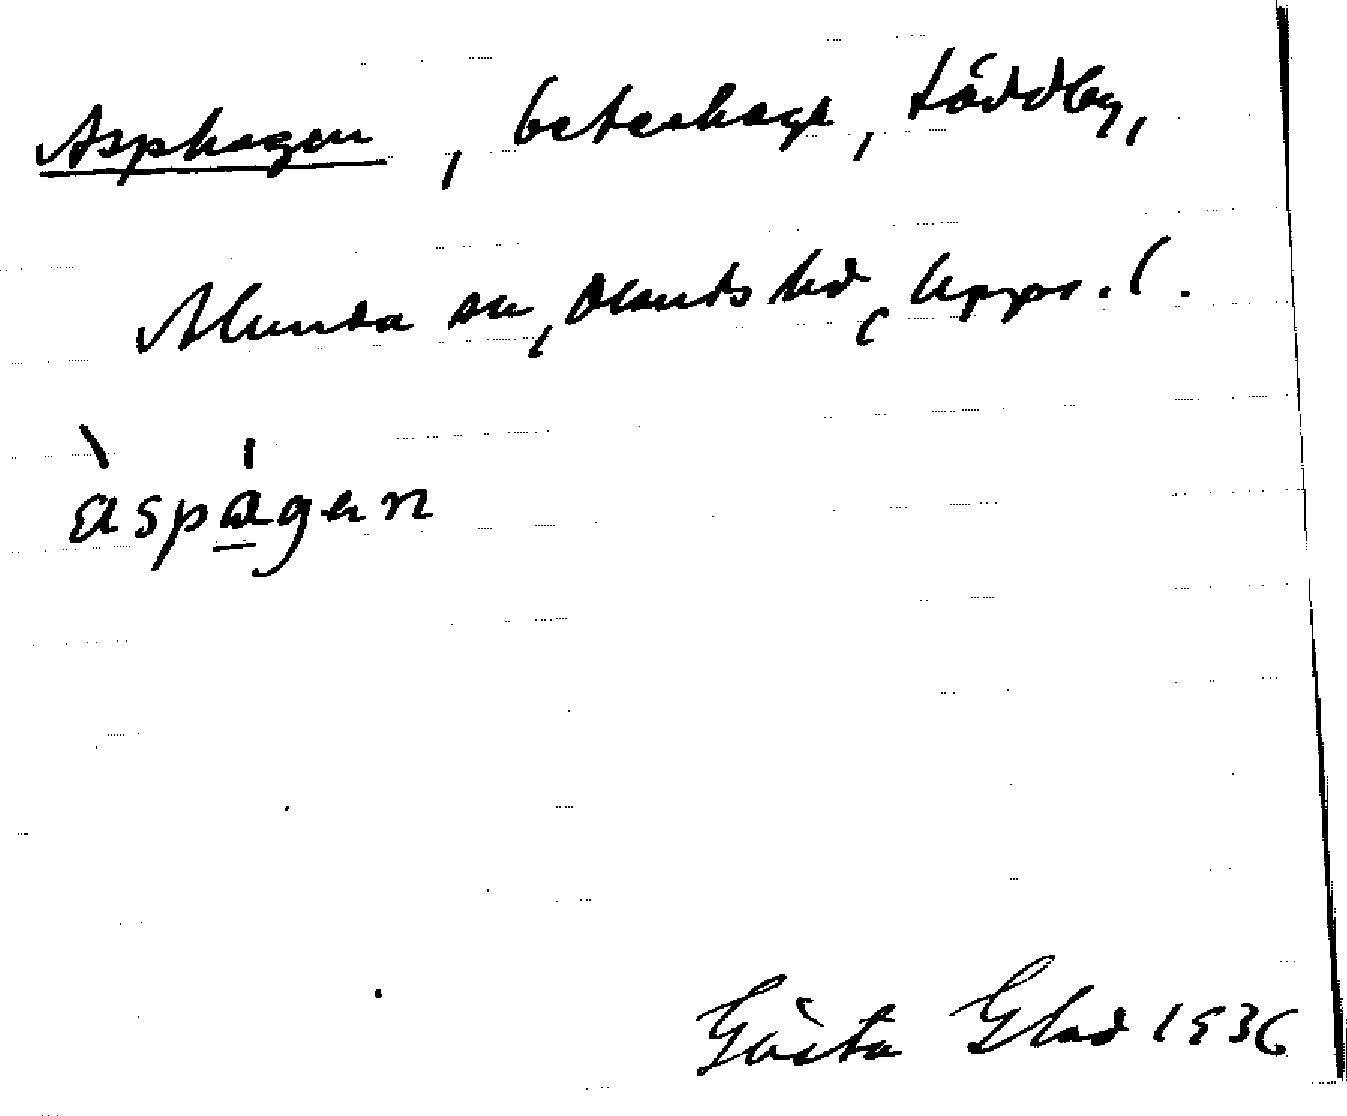 Asphagen, beteshage, Löddby,
Alunda sn, Olands hd, Upps. l.
àspágen
Gösta Glad 1936